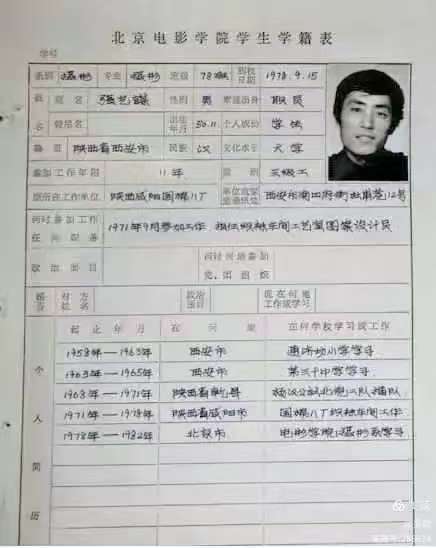 北京电影学院学生学籍表
学号
系别 摄影 专业 摄影 班级 78班 到校日期 1978.9.15
姓 现名 张艺谋 性别 男 家庭出身 职员
名 曾用名 出生年月 50.11 个人成份 学生
籍贯 陕西省西安市 民族 汉 文化水平 大学
参加工作年限 11年 级别 三级工
原所在工作单位 陕西咸阳国棉八厂 12号
何时参加工作任何职务 1971年9月参加工作 图案设计员
政治面目 何时何地参加党、团组织
婚否 对方姓名 政治面目 现在何地工作或学习
起止年月 在何地 在何学校学习或工作
1958年—1963年 西安市 小学学习
1963年—1965年 西安市 第三十中学学习
1968年—1971年 陕西省乾县 插队
1971年—1978年 陕西省咸阳市 国棉八厂 车间工作
1978年—1982年 北京市 电影学院摄影系学习
个人简历